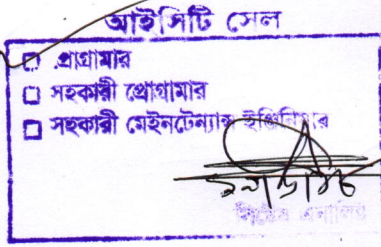 আইসিটি সেল
প্রোগ্রামার
সহকারী প্রোগ্রামার
সহকারী মেইনটেন্যান্স ইঞ্জিনিয়ার